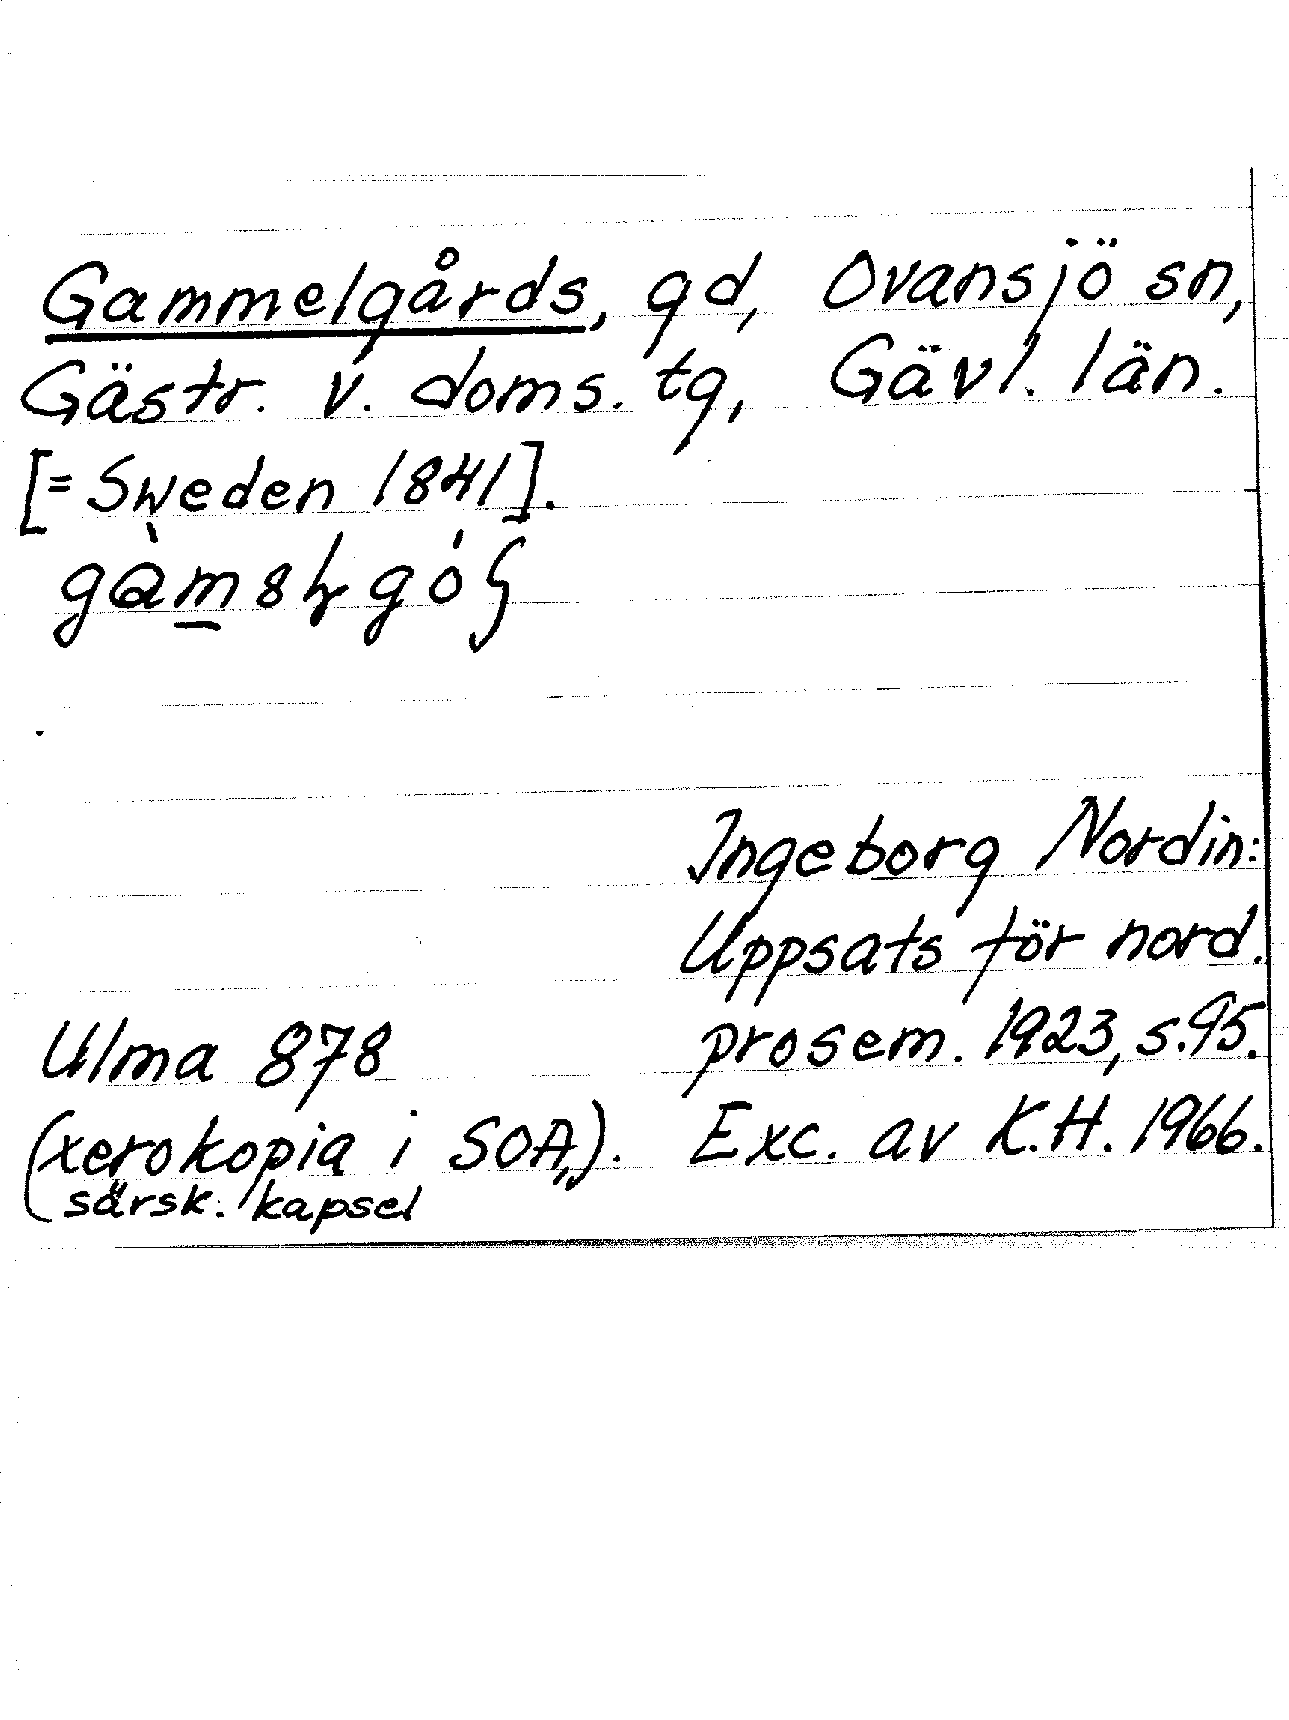 Gammelgårds, gd, Ovansjö sn,
Gästr. v. doms. tg, Gävl. län.
[= Sweden 1841].
Ingeborg Nordin:
Uppsats för nord.
prosem. 1923, s. 95.
Ulma 878
(xerokopia i SOA,). Exc. av K.H. 1966.
särsk. kapsel